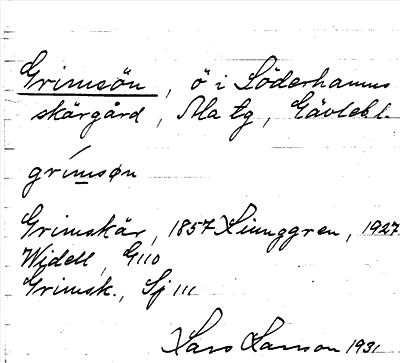 Grimsön, ö i Söderhamns
skärgård, Ala tg, Gävlebl.
grímsøn
Grimskär, 1857 Ljunggren, 1927
Widell, G 110
Grimsk., Sj 111
Lars Larsson 1931